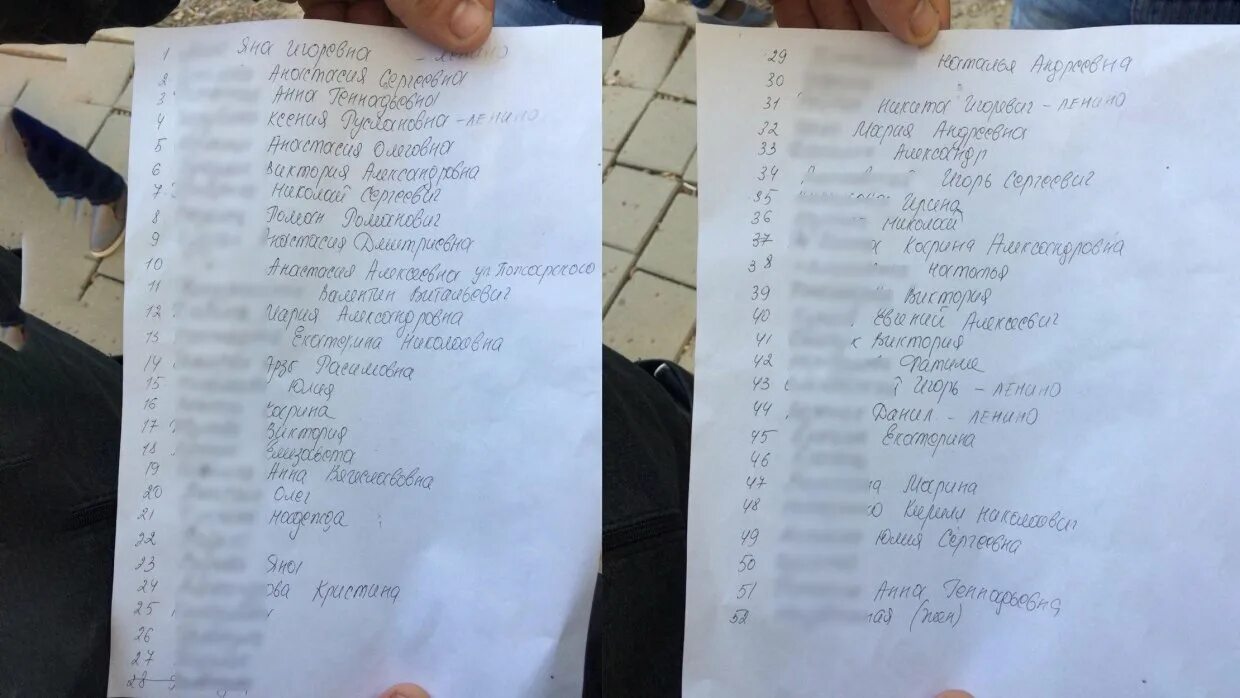 1 Яна Игоревна - Ленино
2 Анастасия Сергеевна
3 Анна Геннадьевна
4 Ксения Руслановна - Ленино
5 Анастасия Олеговна
6 Виктория Александровна
7 Николай Сергеевич
8 Роман Романович
9 Анастасия Дмитриевна
10 Анастасия Алексеевна ул
11 Валентин Витальевич
12 Мария Александровна
13 Екатерина Николаевна
14 Расимовна
15 Юлия
16 Карина
17 Виктория
18 Елизавета
19 Анна Вячеславовна
20 Олег
21 Надежда
22
23 Яна
24 ова Кристина
25
26
27
28
29 Наталья Андреевна
30
31 Никита Игоревич - Ленино
32 Мария Андреевна
33 Александр
34 Игорь Сергеевич
35 Ирина
36 Николай
37 а Карина Александровна
38 Наталья
39 Виктория
40 Евгений Алексеевич
41 к Виктория
42 Фатиме
43 й Игорь - Ленино
44 Данил - Ленино
45 Екатерина
46
47 на Марина
48 ко Кирилл Николаевич
49 Юлия Сергеевна
50
51 Анна Геннадьевна
52 ная